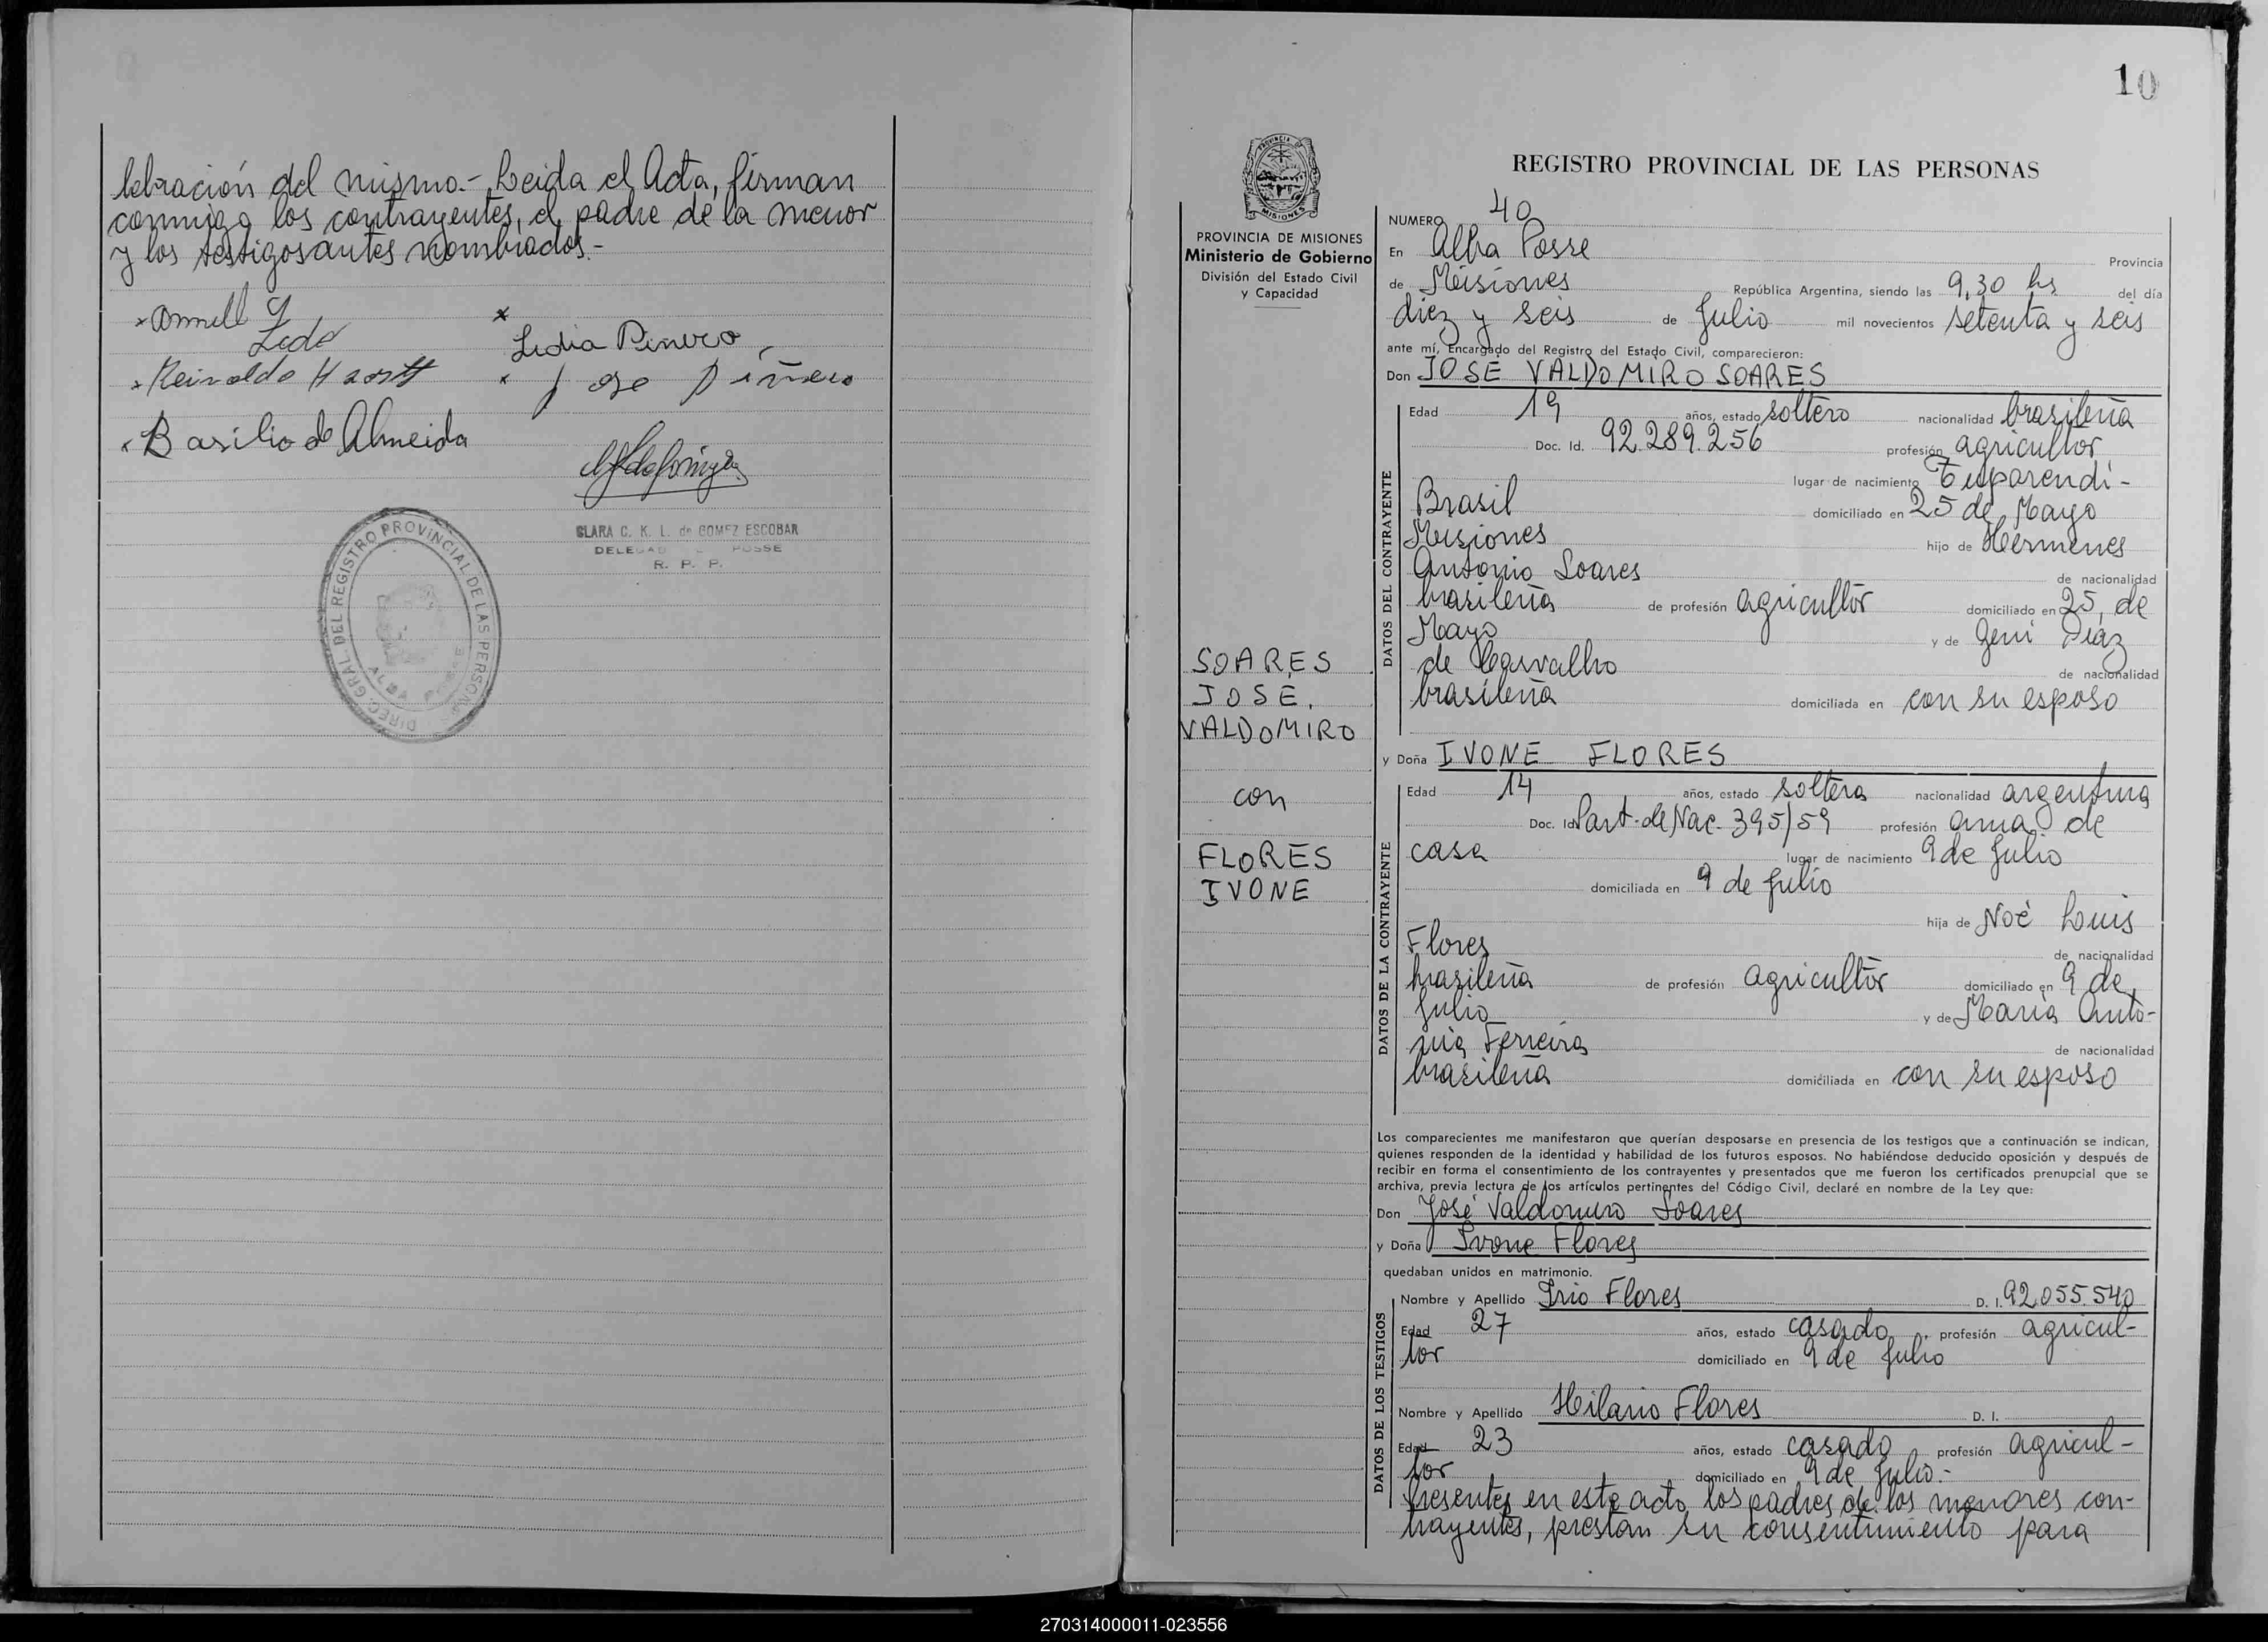 lebración del mismo.- Leida el Acta, firman
conmigo los contrayentes, el padre de la menor
y los testigos antes nombrados.-
Lidia Pinero
Reinaldo
Jose Piñero
Basilio de Almeida
CLARA C. K. L. de GOMEZ ESCOBAR
R. P. P.
DIREC. GRAL. DEL REGISTRO PROVINCIAL DE LAS PERSONAS
ALBA POSSE
10
PROVINCIA
MISIONES
PROVINCIA DE MISIONES
Ministerio de Gobierno
División del Estado Civil
y Capacidad
SOARES
JOSÉ,
VALDOMIRO
con
FLORES
IVONE
REGISTRO PROVINCIAL DE LAS PERSONAS
NUMERO 40
En Alba Posse Provincia
de Misiones República Argentina, siendo las 9,30 hs del día
diez y seis de Julio mil novecientos setenta y seis
ante mí, Encargado del Registro del Estado Civil, comparecieron:
Don JOSÉ VALDOMIRO SOARES
DATOS DEL CONTRAYENTE
Edad 19 años, estado soltero nacionalidad brasileña
Doc. Id. 92.289.256 profesión agricultor
lugar de nacimiento Tuparendi-
Brasil domiciliado en 25 de Mayo
Misiones hijo de Hermenes
Antonio Soares de nacionalidad
brasileña de profesión agricultor domiciliado en 25 de
Mayo y de Geni Diaz
de Carvalho de nacionalidad
brasileña domiciliada en con su esposo
y Doña IVONE FLORES
DATOS DE LA CONTRAYENTE
Edad 14 años, estado soltera nacionalidad argentina
Doc. Id. Part. de Nac. 395/59 profesión ama de
casa lugar de nacimiento 9 de Julio
domiciliada en 9 de Julio
hija de Noé Luis
Flores de nacionalidad
brasileña de profesión agricultor domiciliado en 9 de
Julio y de María Anto-
nia Ferreira de nacionalidad
brasileña domiciliada en con su esposo
Los comparecientes me manifestaron que querían desposarse en presencia de los testigos que a continuación se indican,
quienes responden de la identidad y habilidad de los futuros esposos. No habiéndose deducido oposición y después de
recibir en forma el consentimiento de los contrayentes y presentados que me fueron los certificados prenupcial que se
archiva, previa lectura de los artículos pertinentes del Código Civil, declaré en nombre de la Ley que:
Don José Valdomiro Soares
y Doña Ivone Flores
quedaban unidos en matrimonio.
DATOS DE LOS TESTIGOS
Nombre y Apellido Irio Flores D. I. 92.055.540
Edad 27 años, estado casado, profesión agricul-
tor domiciliado en 9 de Julio
Nombre y Apellido Hilario Flores D. I.
Edad 23 años, estado casado profesión agricul-
tor domiciliado en 9 de Julio.-
Presentes en este acto los padres de los menores con-
trayentes, prestan su consentimiento para
270314000011-023556